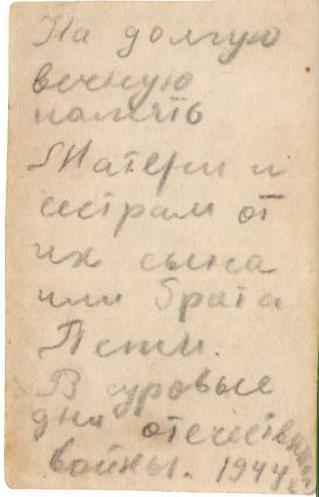 На долгую
вечную
память
Матери и
сестрам от
их сына
или брата
Пети.
В суровые
дни отечествнной
войны. 1944 г.